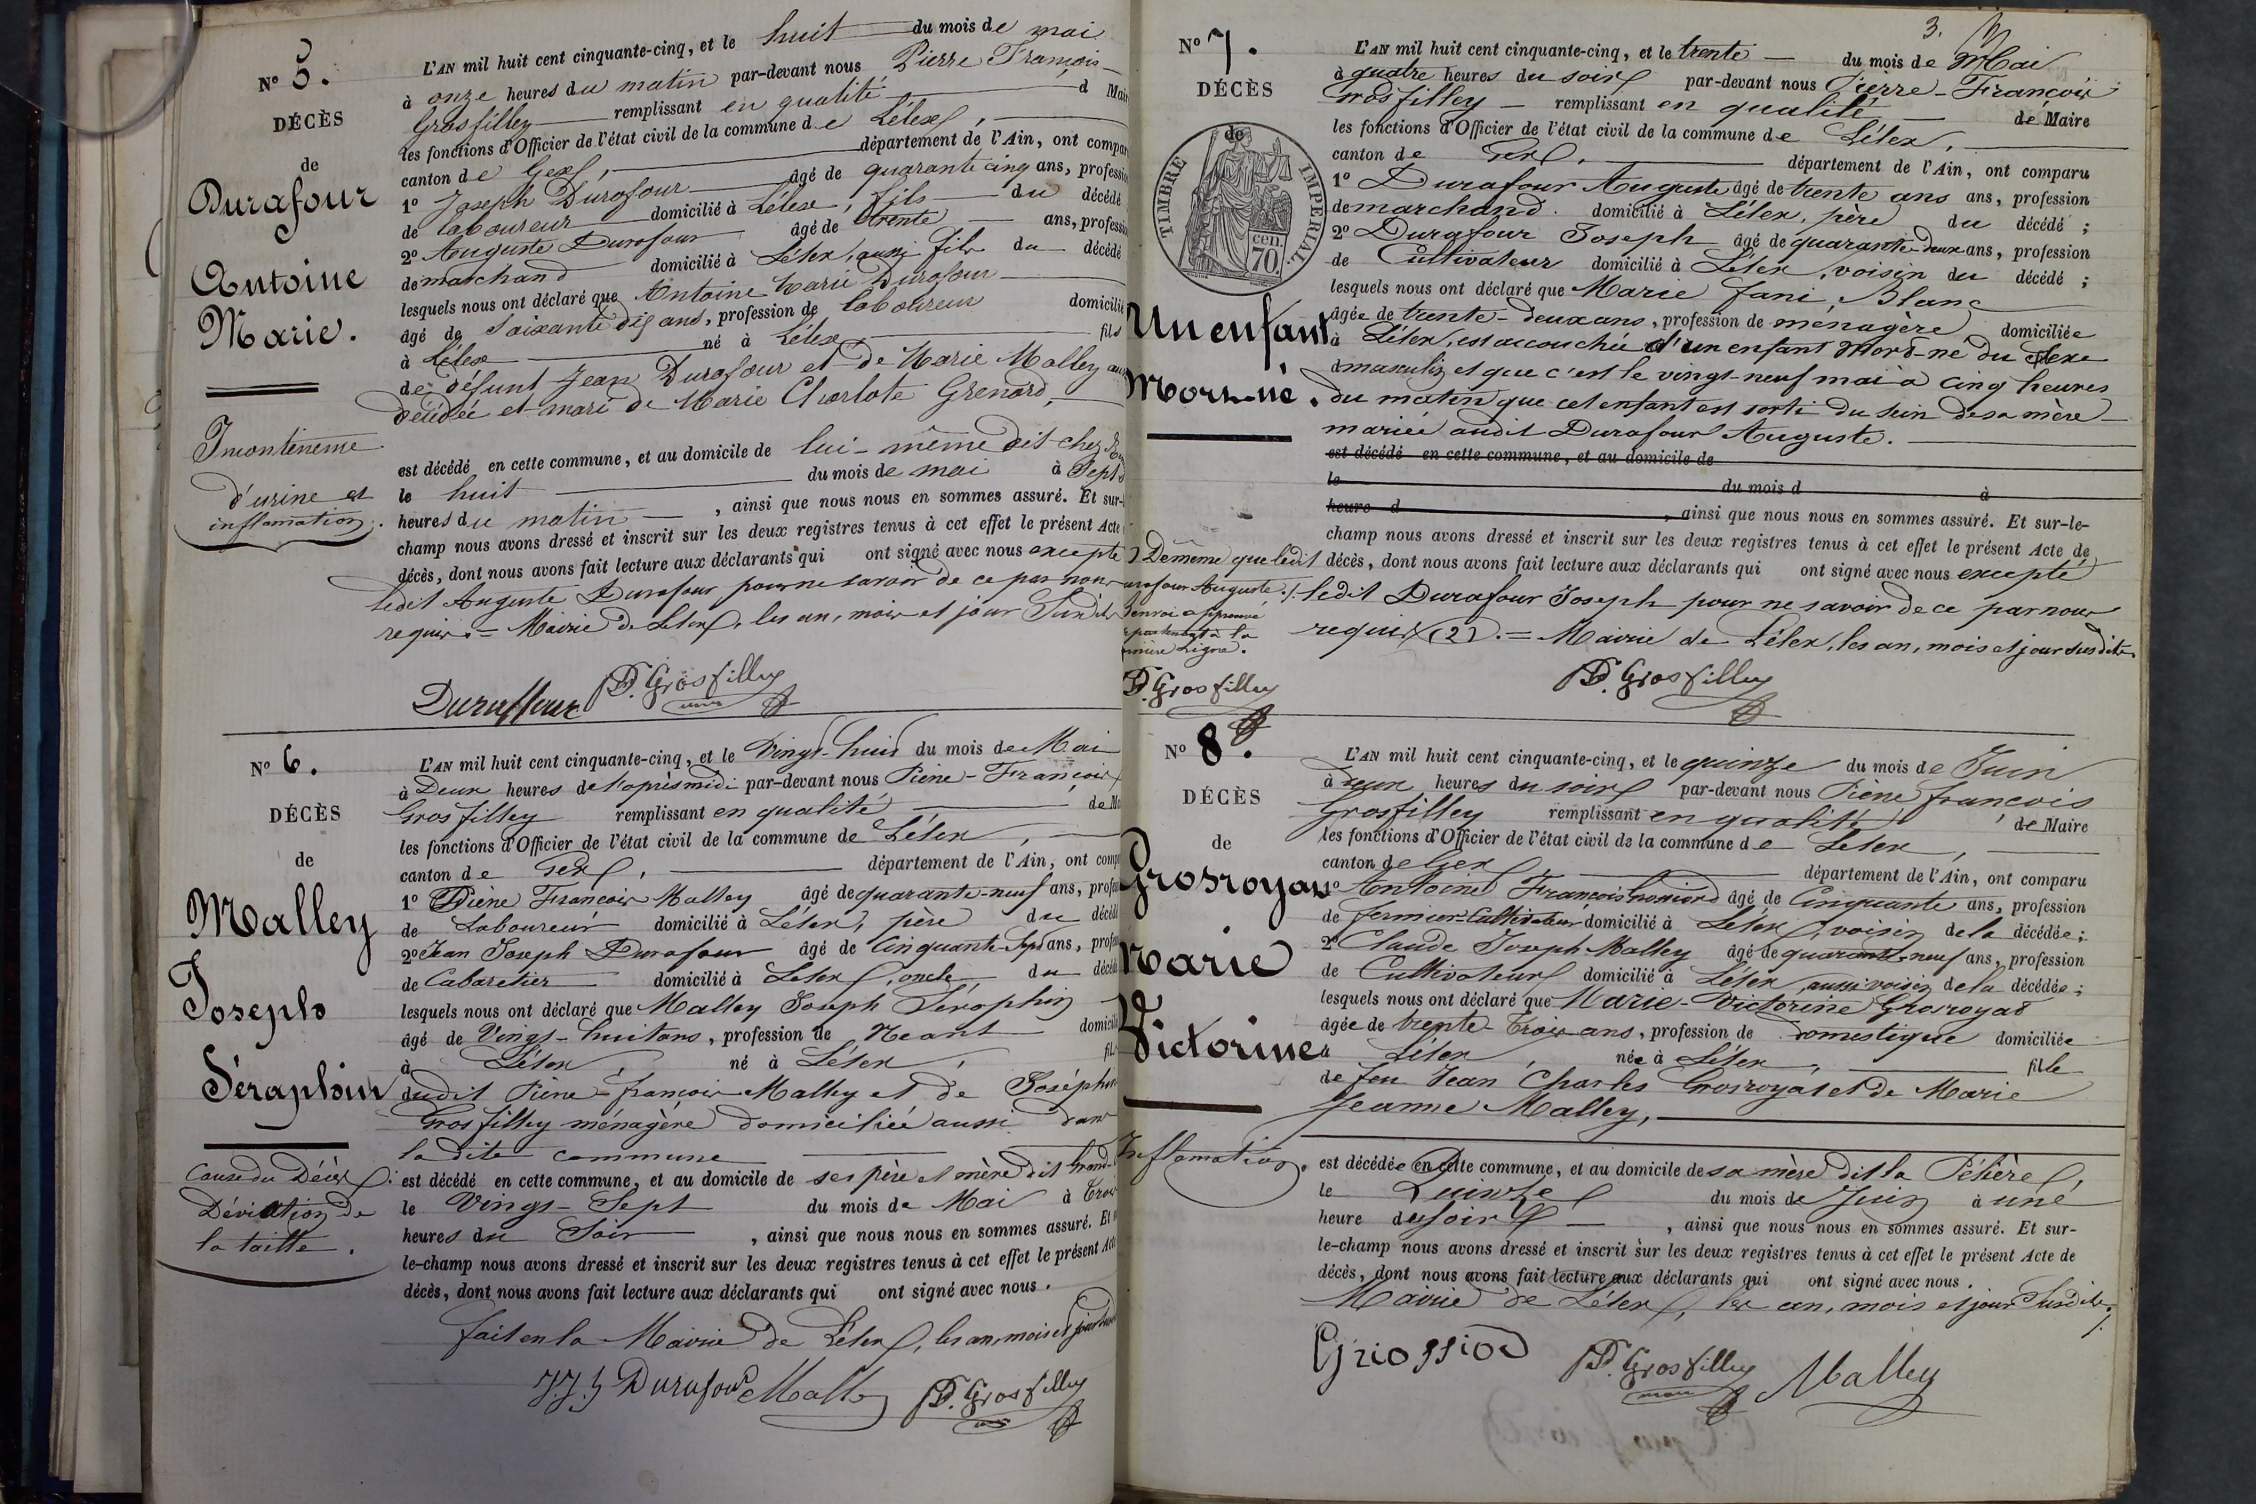 N° 5.
DÉCÈS
de
Durafour
Antoine
Marie.
Incontinence
d'urine et
inflamation.
L'AN mil huit cent cinquante-cinq, et le huit du mois de mai
à onze heures du matin par-devant nous Pierre François
Grosfilley remplissant en qualité d Mair
les fonctions d'Officier de l'état civil de la commune de Lélex,
canton de Gex, département de l'Ain, ont compar
1° Joseph Durafour âgé de quarante cinq ans, professio
de laboureur domicilié à Lélex, fils du décédé
2° Auguste Durafour âgé de trente ans, professio
de marchand domicilié à Lélex, aussi fils du décédé
lesquels nous ont déclaré que Antoine Marie Durafour
âgé de Soixante dix ans, profession de laboureur domicilié
à Lélex né à Lélex fils
de défunt Jean Durafour et de Marie Malley
décédée et mari de Marie Charlote Grenard,
est décédé en cette commune, et au domicile de lui-même dit chez
le huit du mois de mai à Sept
heures du matin, ainsi que nous nous en sommes assuré. Et sur-
champ nous avons dressé et inscrit sur les deux registres tenus à cet effet le présent Acte
décès, dont nous avons fait lecture aux déclarants qui ont signé avec nous excepté
ledit Auguste Durafour pour ne savoir de ce par nous
requis. = Mairie de Lélex, les an, mois et jour Susdits
Duraffour P.F. Grosfilley
N° 6.
DÉCÈS
de
Malley
Joseph
Séraphin
Cause du Décès:
Déviation de
la taille.
L'AN mil huit cent cinquante-cinq, et le Vingt-huit du mois de Mai
à Deux heures de l'après midi par-devant nous Pierre-François
Grosfilley remplissant en qualité de Ma
les fonctions d'Officier de l'état civil de la commune de Lélex,
canton de Gex, département de l'Ain, ont comp
1° Pierre François Malley âgé de quarante-neuf ans, profes
de Laboureur domicilié à Lélex, père du décédé
2° Jean Joseph Durafour âgé de Cinquante-Sept ans, profes
de Cabaretier domicilié à Lélex, oncle du décédé
lesquels nous ont déclaré que Malley Joseph Séraphin
âgé de Vingt-huit ans, profession de Néant domicilié
à Lélex, né à Lélex, fils
dudit Pierre-François Malley et de Joséphine
Grosfilley ménagère domiciliée aussi dans
la dite commune
est décédé en cette commune, et au domicile de ses père et mère dit Grand-
le Vingt-Sept du mois de Mai à Trois
heures du Soir, ainsi que nous nous en sommes assuré. Et
le-champ nous avons dressé et inscrit sur les deux registres tenus à cet effet le présent Acte
décès, dont nous avons fait lecture aux déclarants qui ont signé avec nous.
fait en la Mairie de Lélex, les an, mois et jour susd
J.J.h Durafour Malley P.F. Grosfilley
3.
N° 7.
DÉCÈS
de
TIMBRE IMPERIAL.
cen.
70.
Un enfant
Mort-né.
L'AN mil huit cent cinquante-cinq, et le trente du mois de Mai
à quatre heures du soir par-devant nous Pierre-François
Grosfilley remplissant en qualité de Maire
les fonctions d'Officier de l'état civil de la commune de Lélex,
canton de Gex, département de l'Ain, ont comparu
1° Durafour Auguste âgé de trente ans ans, profession
de marchand. domicilié à Lélex, père du décédé;
2° Durafour Joseph âgé de quarante-deux ans, profession
de Cultivateur domicilié à Lélex, voisin du décédé;
lesquels nous ont déclaré que Marie Jani Blanc
âgée de trente-deux ans, profession de ménagère domiciliée
à Lélex, est accouchée d'un enfant mort-né du Sexe
masculin et que c'est le vingt-neuf mai à cinq heures
du matin que cet enfant est sorti du sein de sa mère
mariée audit Durafour Auguste.
est décédé en cette commune, et au domicile de
le du mois d à
heure d, ainsi que nous nous en sommes assuré. Et sur-le-
champ nous avons dressé et inscrit sur les deux registres tenus à cet effet le présent Acte de
décès, dont nous avons fait lecture aux déclarants qui ont signé avec nous excepté
ledit Durafour Joseph pour ne savoir de ce par nous
requis (2). = Mairie de Lélex, les an, mois et jour susdits.
P.F. Grosfilley
) De même que ledit
urafour Auguste./.
Renvoi approuvé
à la
Ligne.
P.F. Grosfilley
N° 8.
DÉCÈS
de
Grosroyat
Marie
Victorine
Inflamation.
L'AN mil huit cent cinquante-cinq, et le quinze du mois de Juin
à deux heures du soir par-devant nous Pierre François
Grosfilley remplissant en qualité de Maire
les fonctions d'Officier de l'état civil de la commune de Lélex,
canton de Gex département de l'Ain, ont comparu
1° Antoine François Grossiord âgé de Cinquante ans, profession
de fermier-Cultivateur domicilié à Lélex, voisin de la décédée;
2° Claude Joseph Malley âgé de quarante-neuf ans, profession
de Cultivateur domicilié à Lélex, aussi voisin de la décédée;
lesquels nous ont déclaré que Marie-Victorine Grosroyat
âgée de trente-trois ans, profession de domestique domiciliée
à Lélex, née à Lélex, fille
de feu Jean Charles Grosroyat et de Marie
Jeanne Malley,
est décédée en cette commune, et au domicile de sa mère dit la Pétière,
le Quinze du mois de Juin à une
heure du soir, ainsi que nous nous en sommes assuré. Et sur-
le-champ nous avons dressé et inscrit sur les deux registres tenus à cet effet le présent Acte de
décès, dont nous avons fait lecture aux déclarants qui ont signé avec nous.
Mairie de Lélex, les an, mois et jour Susdits./.
Griossiod P.F. Grosfilley Malley